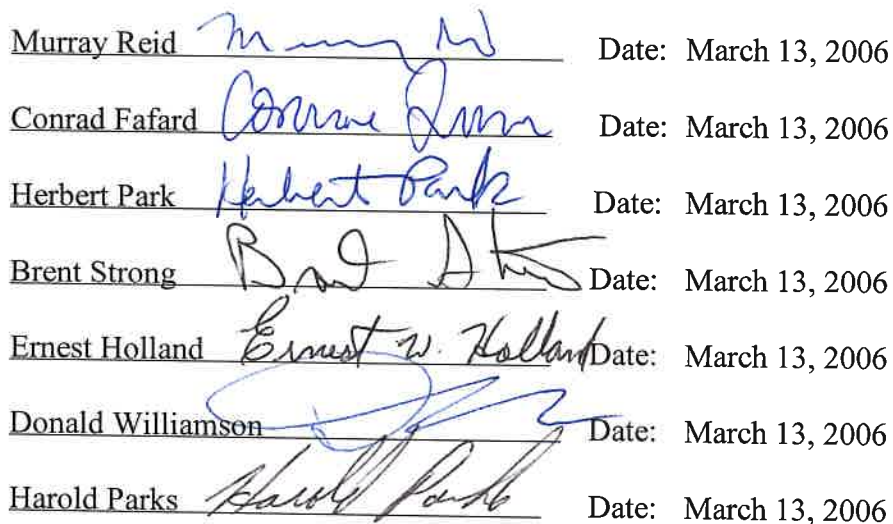 Murray Reid Date: March 13, 2006
Conrad Fafard Date: March 13, 2006
Herbert Park Herbert Park Date: March 13, 2006
Brent Strong Date: March 13, 2006
Ernest Holland Ernest W. Holland Date: March 13, 2006
Donald Williamson Date: March 13, 2006
Harold Parks Harold Parks Date: March 13, 2006